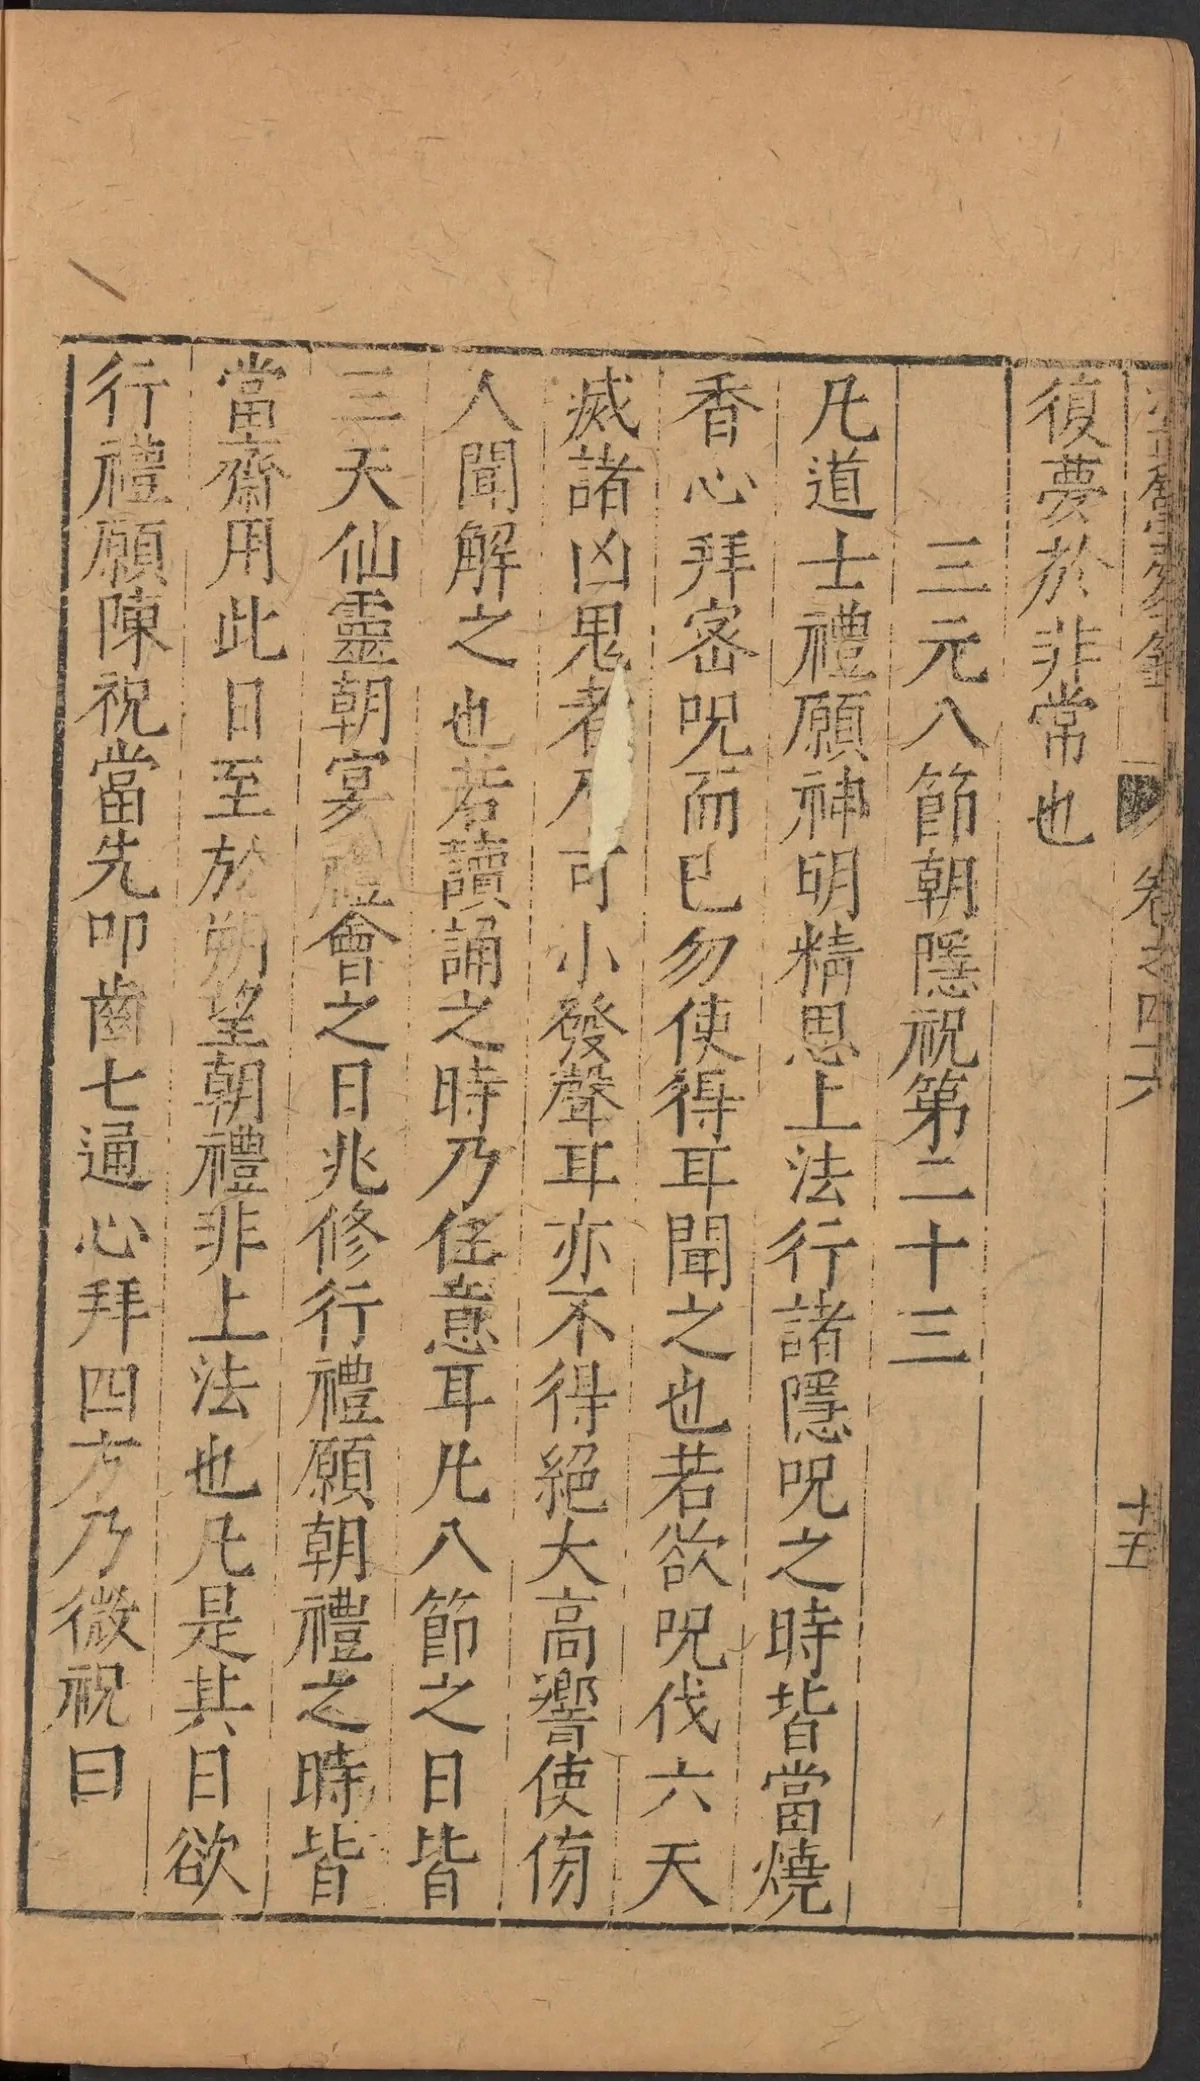 復夢於非常也
三元八節朝隱祝第二十三
凡道士禮願神明精思上法行諸隱呪之時皆當燒
香心拜密呪而已勿使得耳聞之也若欲呪伐六天
滅諸凶鬼者乃可小發聲耳亦不得絕大高響使傍
人聞解之也若讀誦之時乃任意耳凡八節之日皆
三天仙靈朝宴禮會之日兆修行禮願朝禮之時皆
當齋用此日至於朔望朝禮非上法也凡是其日欲
行禮願陳祝當先叩齒七通心拜四方乃微祝曰
卷之四十六
十五